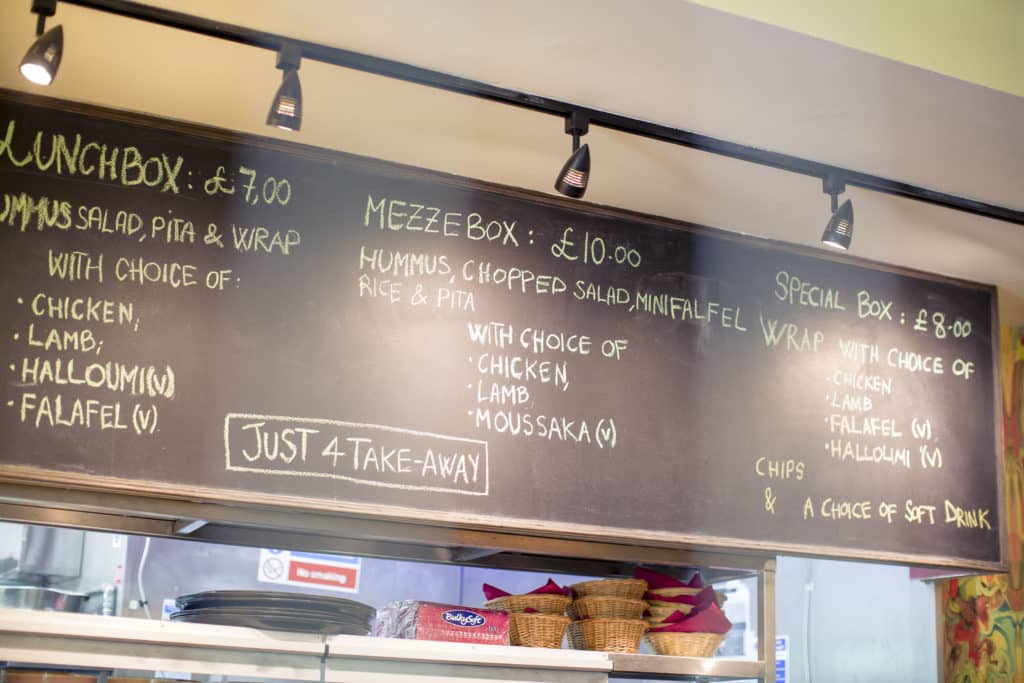 LUNCHBOX: £7,00
SALAD, PITA & WRAP
WITH CHOICE OF:
• CHICKEN,
• LAMB;
• HALLOUMI(V)
• FALAFEL(V)
JUST 4 TAKE-AWAY
MEZZEBOX: £10.00
HUMMUS, CHOPPED SALAD, MINIFALFEL
RICE & PITA
WITH CHOICE OF
• CHICKEN,
• LAMB
• MOUSSAKA(V)
SPECIAL BOX: £8.00
WRAP WITH CHOICE OF
• CHICKEN
• LAMB
• FALAFEL (V)
• HALLOUMI (V)
CHIPS
& A CHOICE OF SOFT DRINK
No smoking
BulkySoft